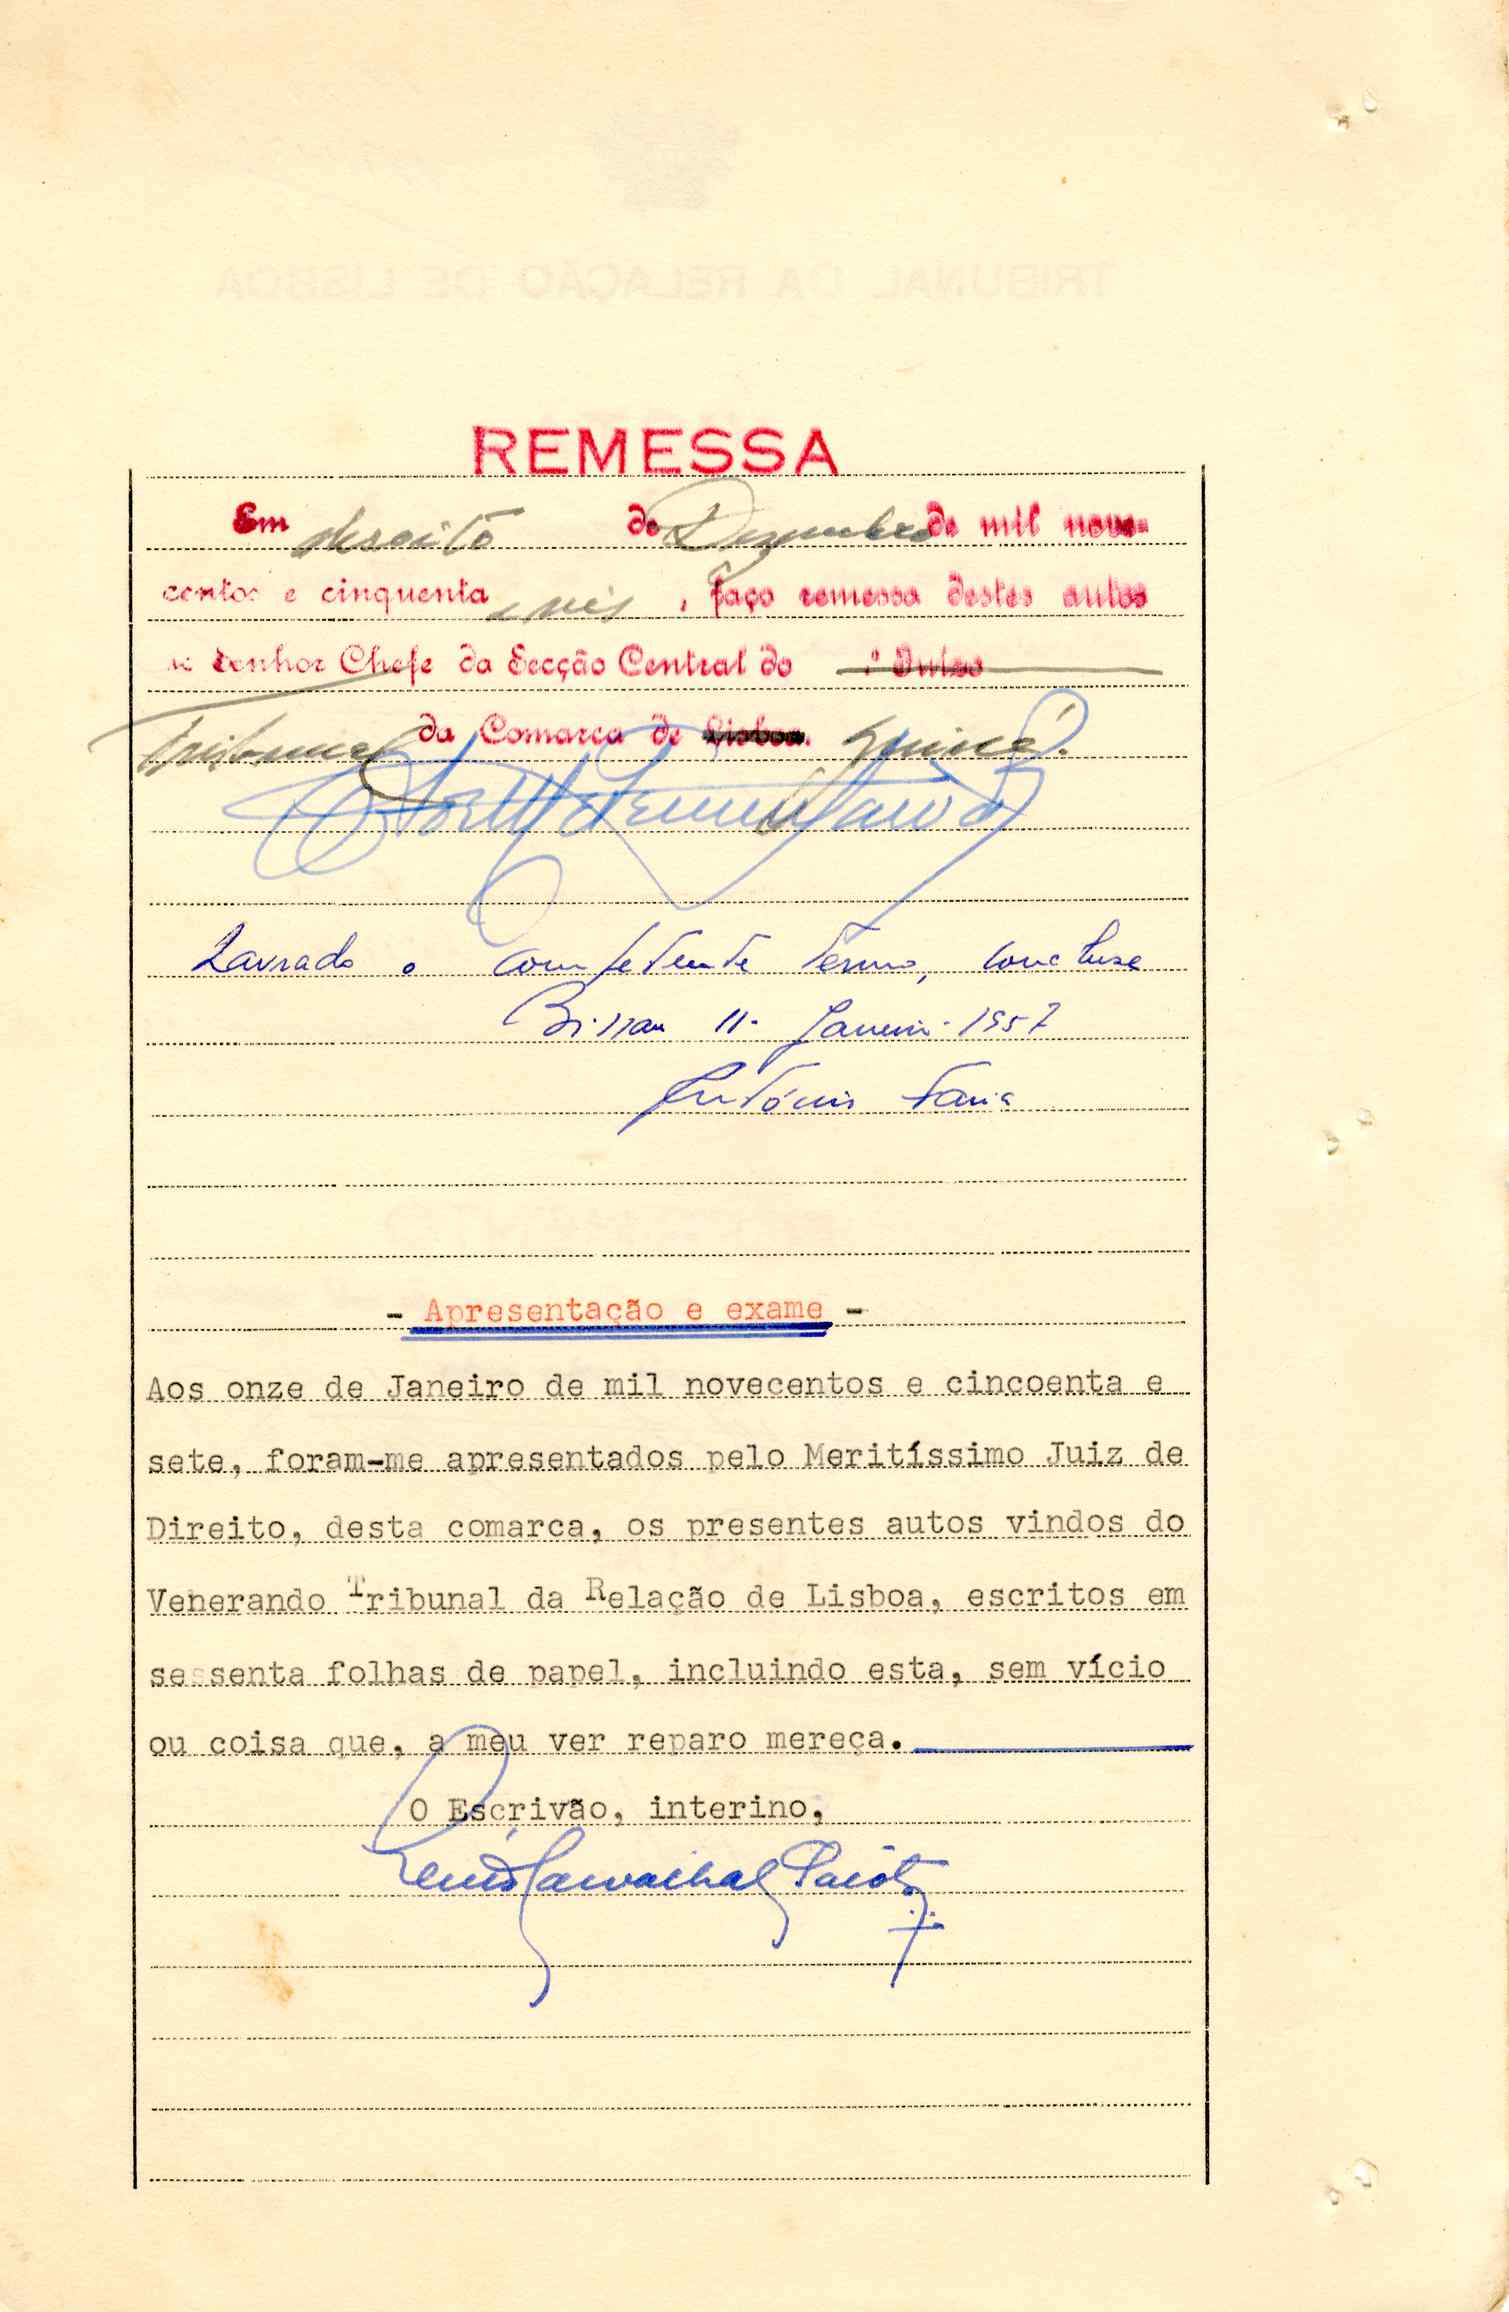 REMESSA
Em desoito de Dezembro de mil nove-
centos e cinquenta e seis, faço remessa destes autos
Senhor Chefe da Secção Central do .º Juízo
Tribunal da Comarca de Lisboa. Guiné.
Lavrado o competente termo, conclusa
Bissau 11- Janeiro - 1957
António Faria
- Apresentação e exame -
Aos onze de Janeiro de mil novecentos e cincoenta e
sete, foram-me apresentados pelo Meritíssimo Juiz de
Direito, desta comarca, os presentes autos vindos do
Venerando Tribunal da Relação de Lisboa, escritos em
sessenta folhas de papel, incluindo esta, sem vício
ou coisa que, a meu ver reparo mereça.
O Escrivão, interino,